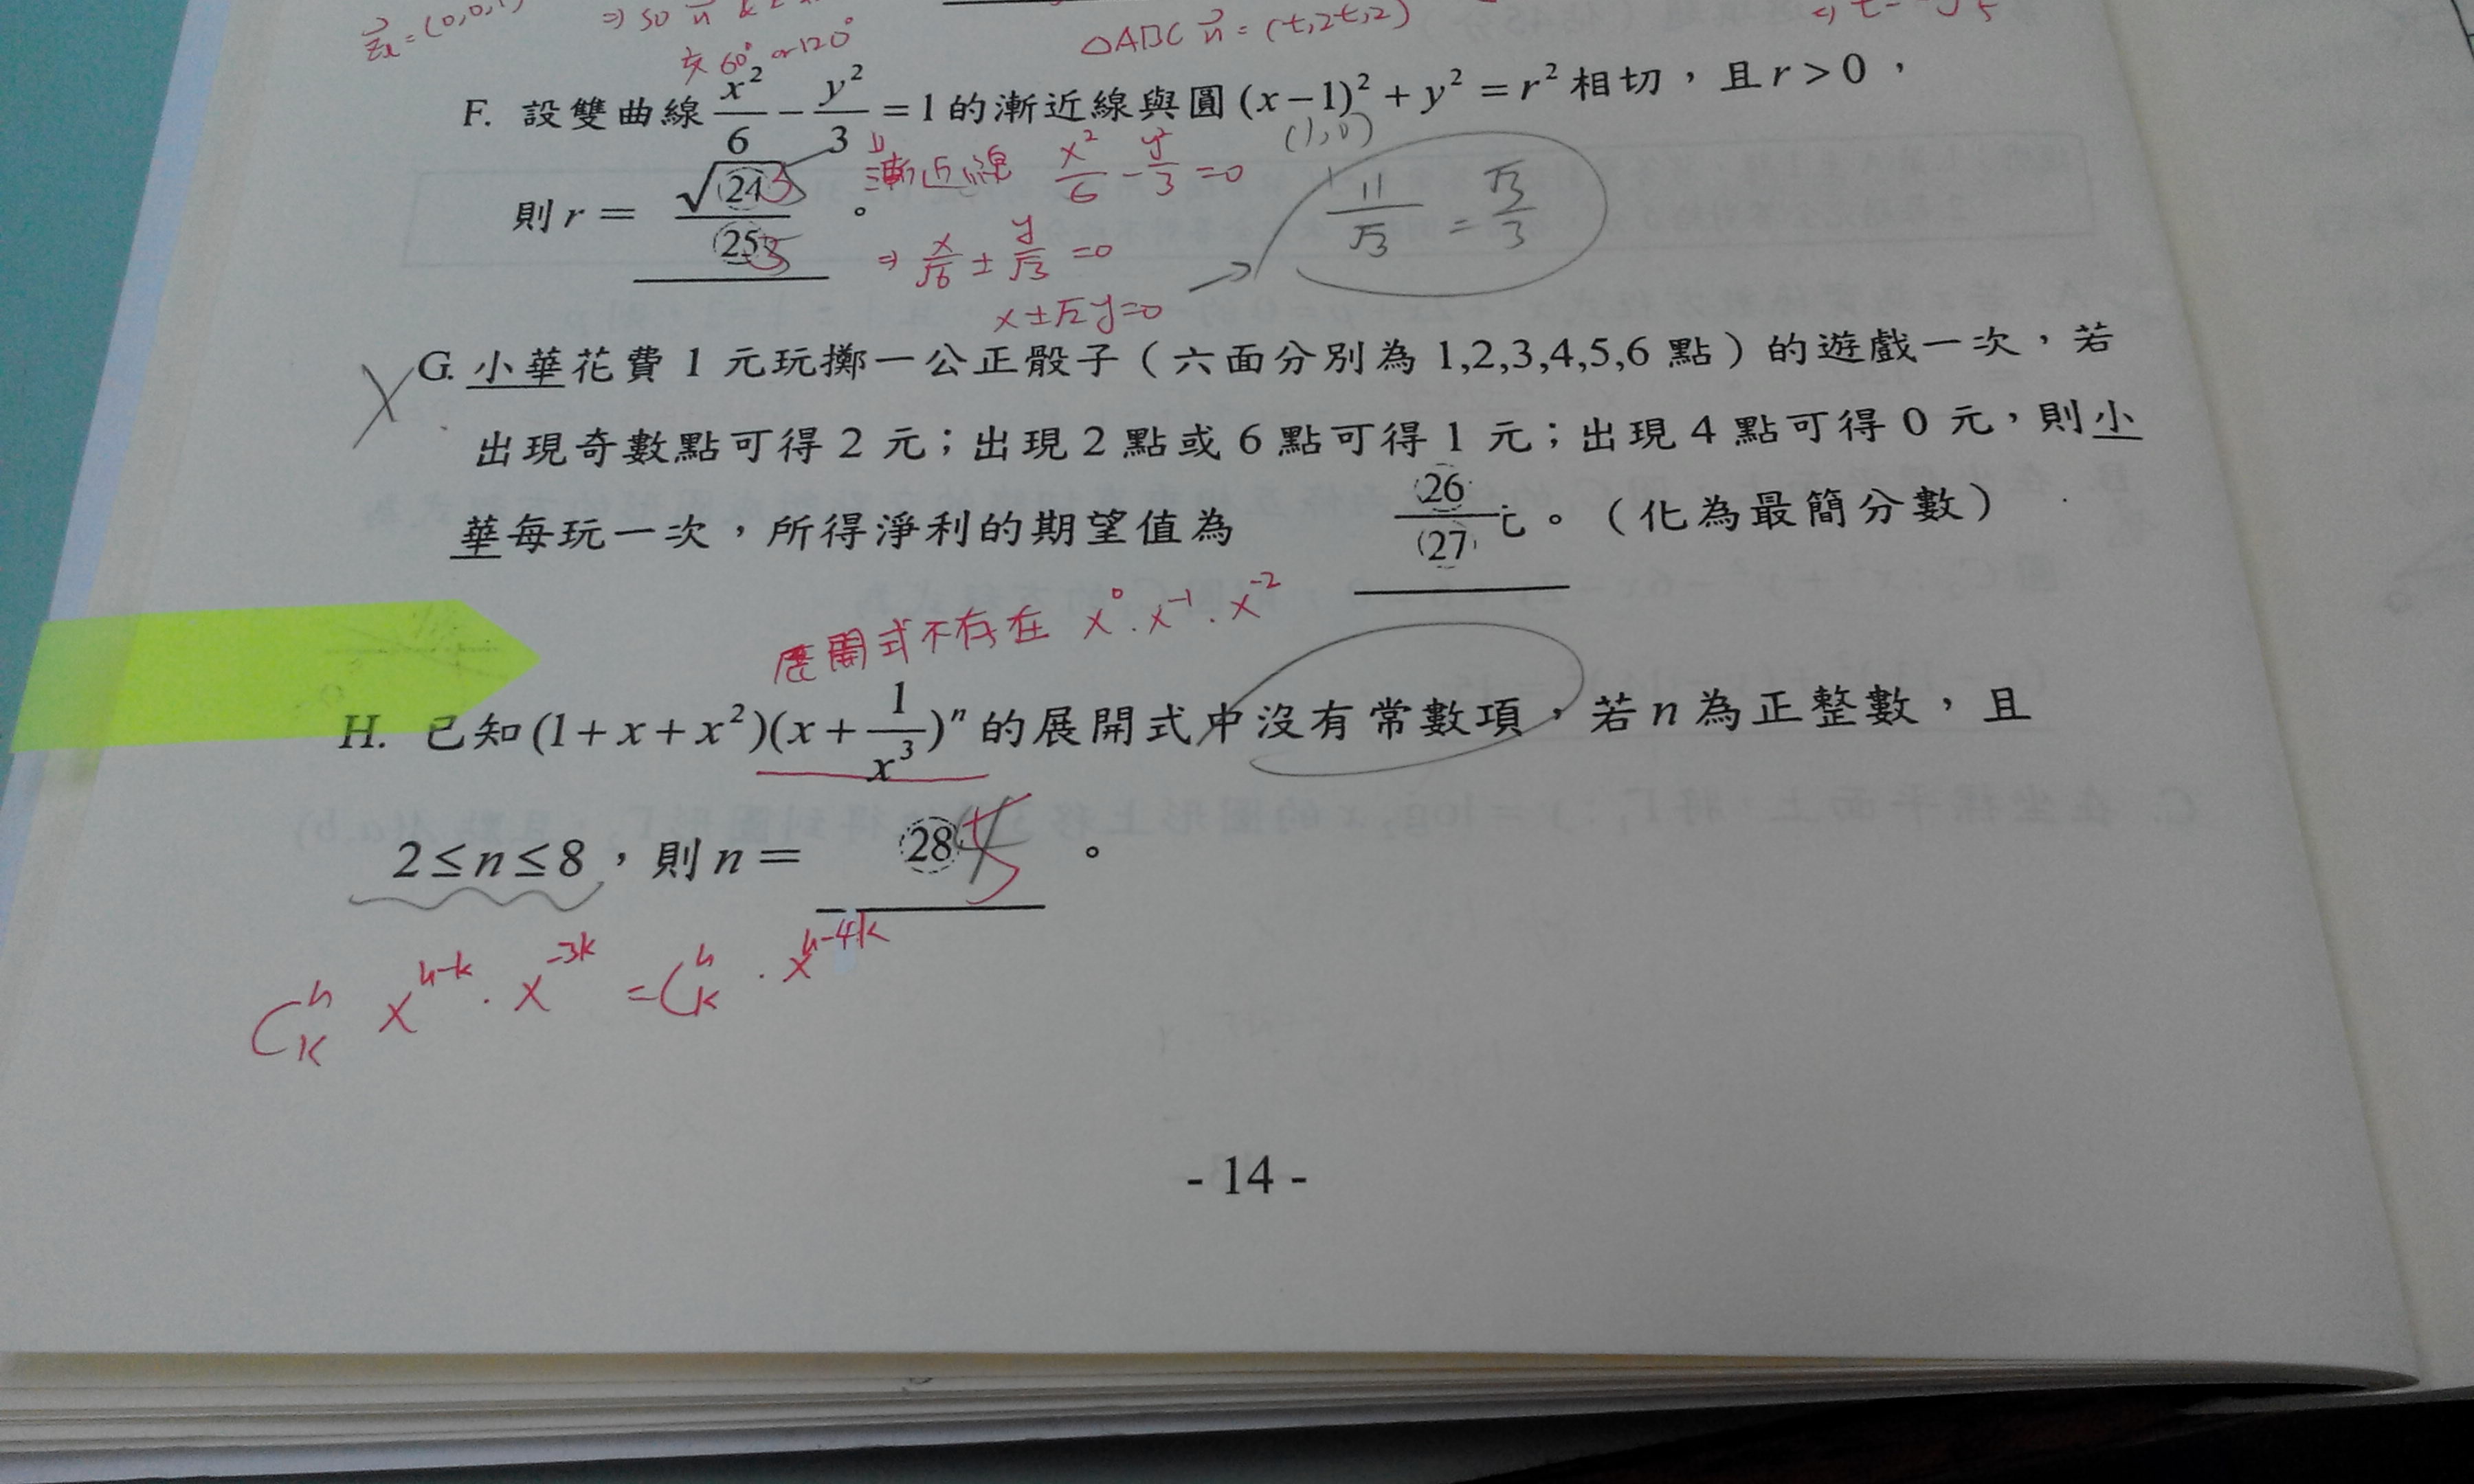 交60° or 120°
△ABC n⃗ = (t,2t,2)
F. 設雙曲線 x²/6 − y²/3 = 1 的漸近線與圓 (x−1)² + y² = r² 相切，且 r > 0，
(1,0)
則 r = √(24)/(25) 。
3
3
漸近線 x²/6 − y²/3 = 0
⇒ x/√6 ± y/√3 = 0
x±√2y=0
|1|/√3 = √3/3
G. 小華花費 1 元玩擲一公正骰子（六面分別為 1,2,3,4,5,6 點）的遊戲一次，若
出現奇數點可得 2 元；出現 2 點或 6 點可得 1 元；出現 4 點可得 0 元，則小
華每玩一次，所得淨利的期望值為 (26)/(27) 元。（化為最簡分數）
展開式不存在 x⁰．x⁻¹．x⁻²
H. 已知 (1 + x + x²)(x + 1/x³)ⁿ 的展開式中沒有常數項，若 n 為正整數，且
2 ≤ n ≤ 8，則 n = (28) 。
5
Cⁿₖ xⁿ⁻ᵏ · x⁻³ᵏ = Cⁿₖ · xⁿ⁻⁴ᵏ
- 14 -